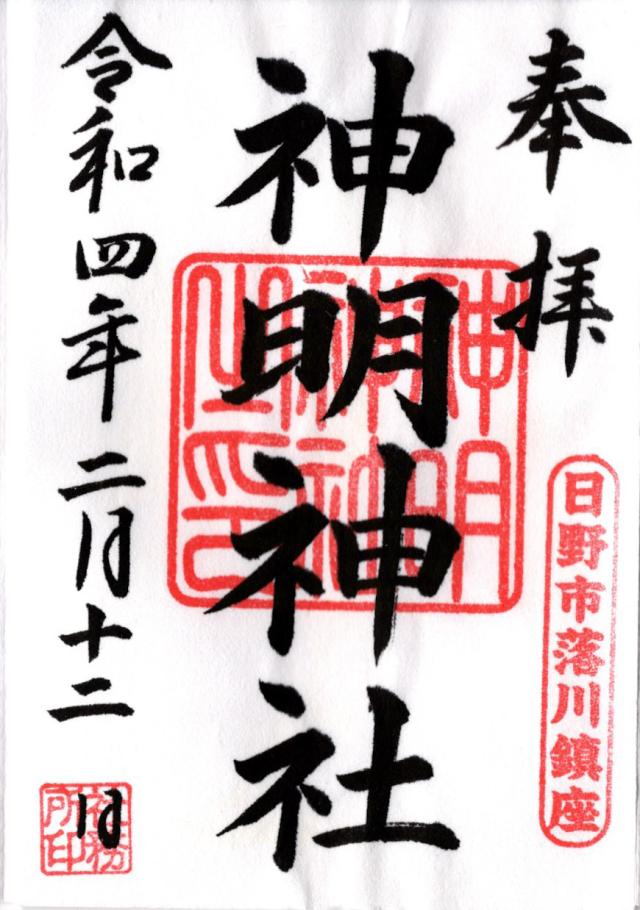 奉拝
日野市落川鎮座
神明神社
神明神社之印
令和四年二月十二日
社務所印